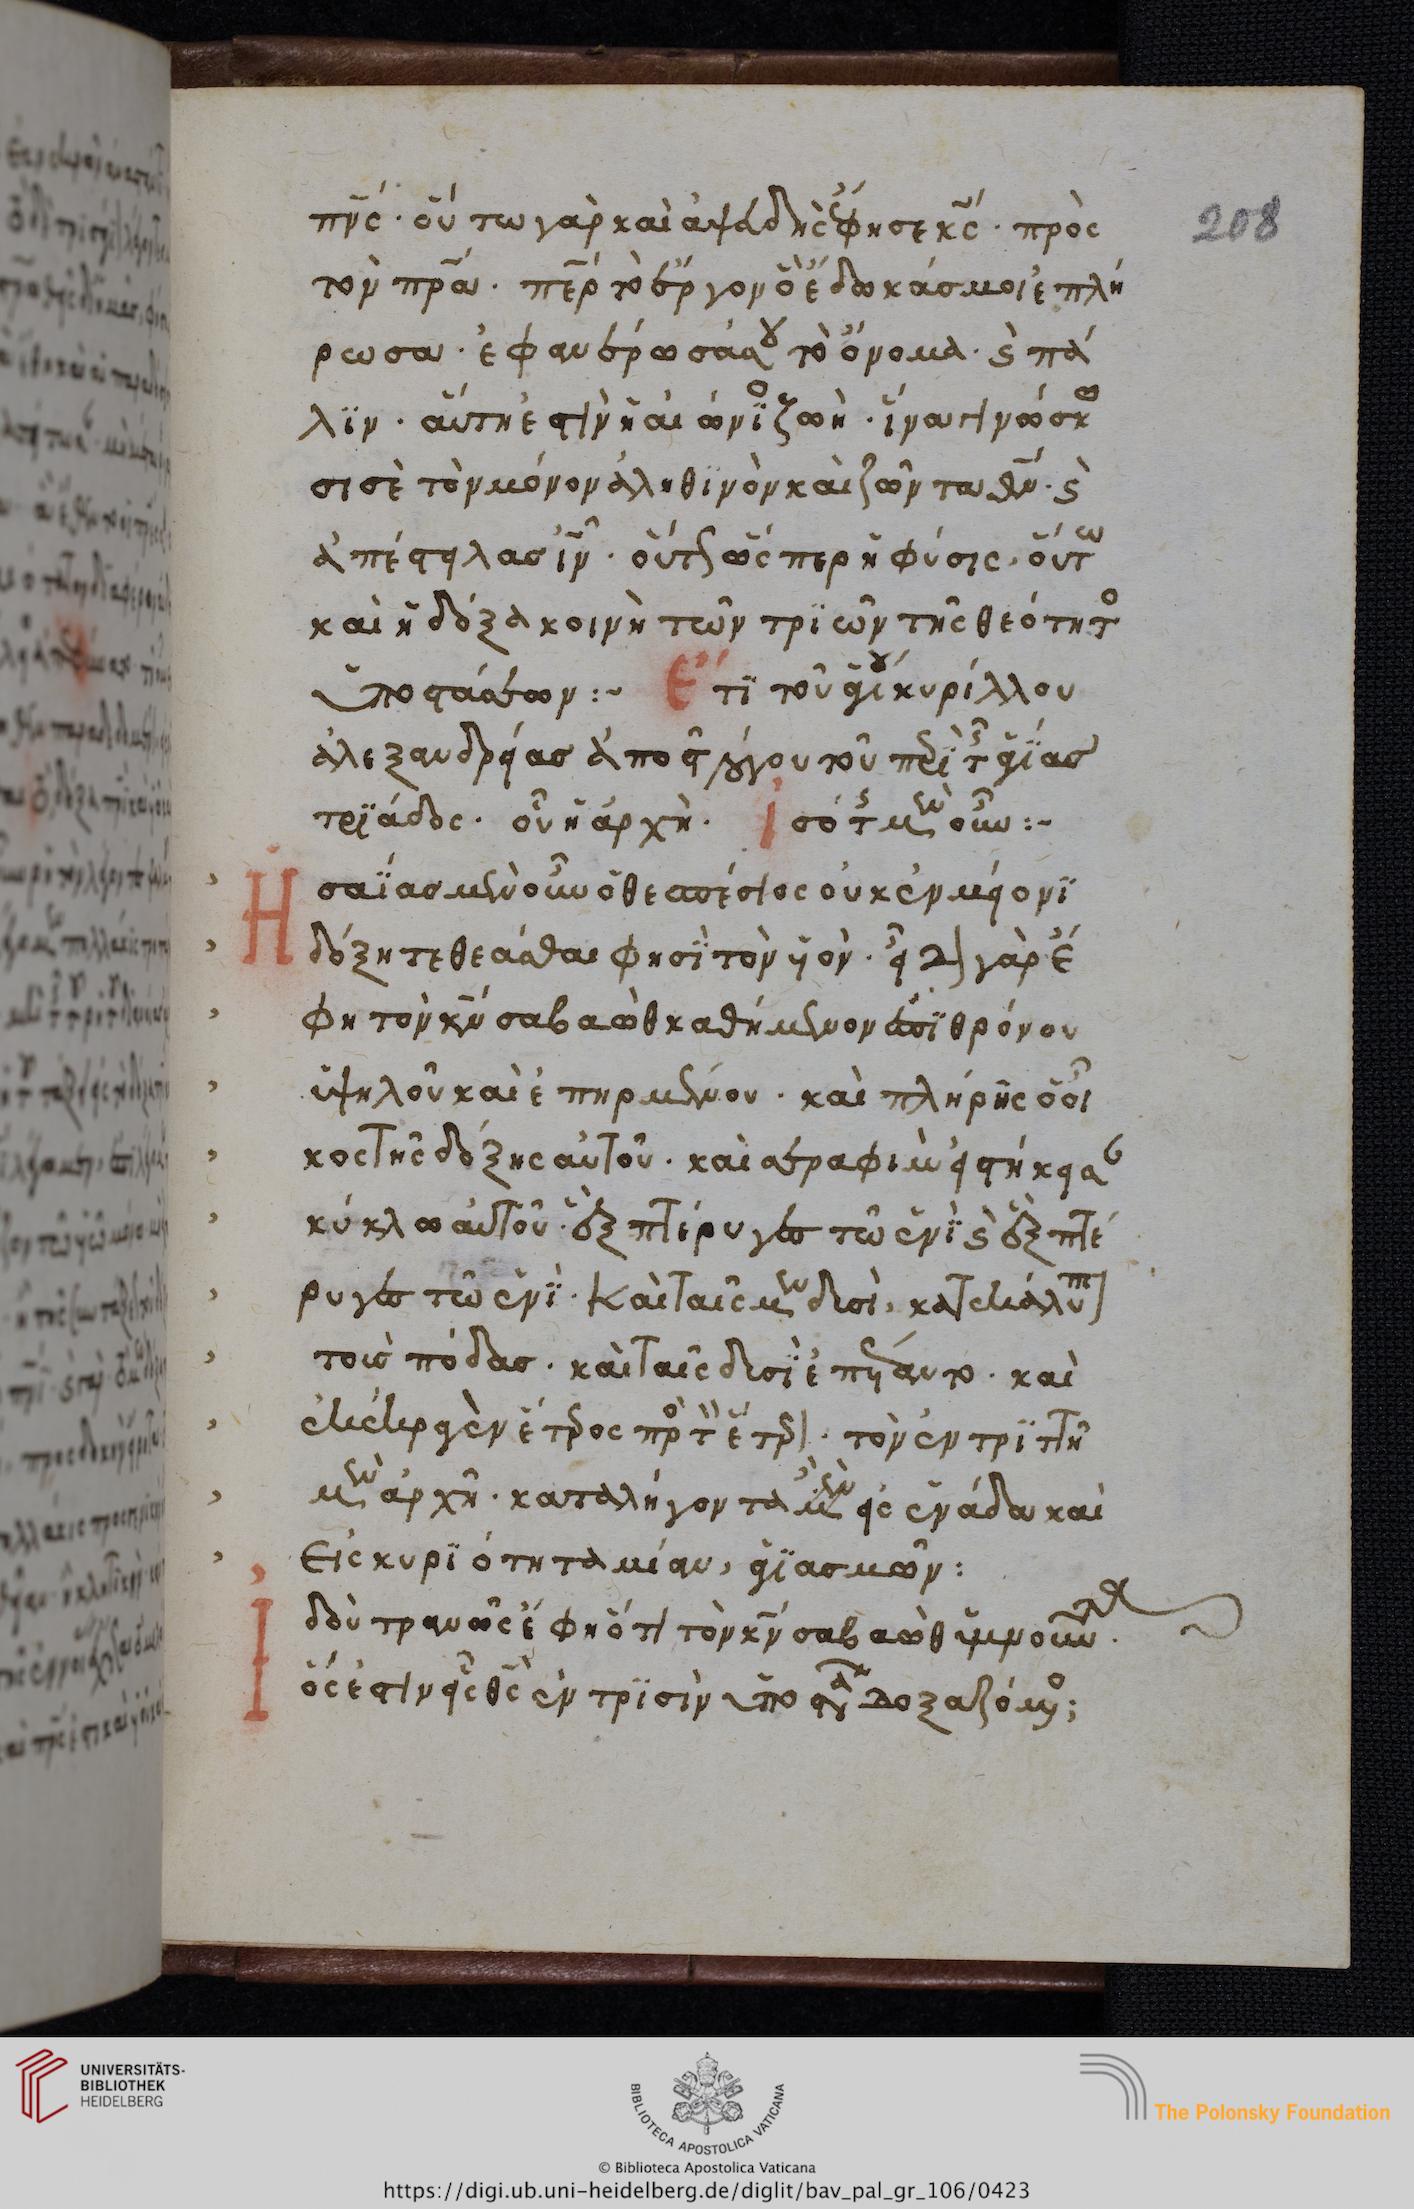 208
πν̅ς· οὕτω γὰρ καὶ ἀψευδὴς ἔφησε κ̅ς· πρὸς
τὸν πρ̅α· π̅ερ τὸ ἔργον ὃ ἔδωκάς μοι ἐπλή
ρωσα· ἐφανέρωσά σου τὸ ὄνομα· καὶ πά
λϊν· αὕτη ἐστὶν ἡ αἰώνϊος ζωὴ· ἵνα γινώσκω
σι σὲ τὸν μόνον ἀληθϊνὸν καὶ ζῶντα θ̅ν· καὶ
ἀπέστειλας ι̅ν· οὐκοῦν ὥσπερ ἡ φύσις, οὕτω
καὶ ἡ δόξα κοινὴ τῶν τρϊῶν τῆς θεότητος
ὑποστάσεων:~ Ἔτϊ τοῦ ἁγίου κυρίλλου
ἀλεξανδρείας ἀπὸ τοῦ λόγου τοῦ περὶ τῆς ἁγΐας
τρϊάδος· οὗ ἡ ἀρχὴ· ἰσότης μὲν οὖν:~
Ἡσαΐας μὲν οὖν ὁ θεσπέσιος οὐκ ἐν μείονϊ
δόξῃ τεθεᾶσθαι φησῒ τὸν υἱὸν· εἶδον γὰρ ἔ
φη τὸν κ̅ν σαβαὼθ καθήμενον ἐπῒ θρόνου
ὑψηλοῦ καὶ ἐπηρμένου· καὶ πλήρης ὁ οἶ
κος τῆς δόξης αὐτοῦ· καὶ σεραφὶμ εἱστήκεισαν
κύκλω αὐτοῦ· ἓξ πτέρυγες τῶ ἑνῒ καὶ ἓξ πτέ
ρυγες τῶ ἑνῒ· καὶ ταῖς μὲν δυσὶ, κατεκάλυπτον
τοὺς πόδας· καὶ ταῖς δυσῒ ἐπέταντο· καὶ
ἐκέκραγεν ἕτερος πρὸς τὸν ἕτερον· τὸν ἐν τρϊττῆ
μὲν ἀρχῆ· καταλήγοντα μὲν εἰς ἑνάδα καὶ
εἰς κυρϊότητα μίαν, ἁγϊασμῶν:
Ἰδοὺ τρανῶς ἔφη ὅτι τὸν κ̅ν σαβαὼθ ὑμνοῦν·
ὅς ἐστιν εἷς θ̅ς ἐν τρϊσὶν ὑποστάσεσι δοξαζόμενος;
UNIVERSITÄTS-
BIBLIOTHEK
HEIDELBERG
BIBLIOTECA APOSTOLICA VATICANA
The Polonsky Foundation
© Biblioteca Apostolica Vaticana
https://digi.ub.uni-heidelberg.de/diglit/bav_pal_gr_106/0423